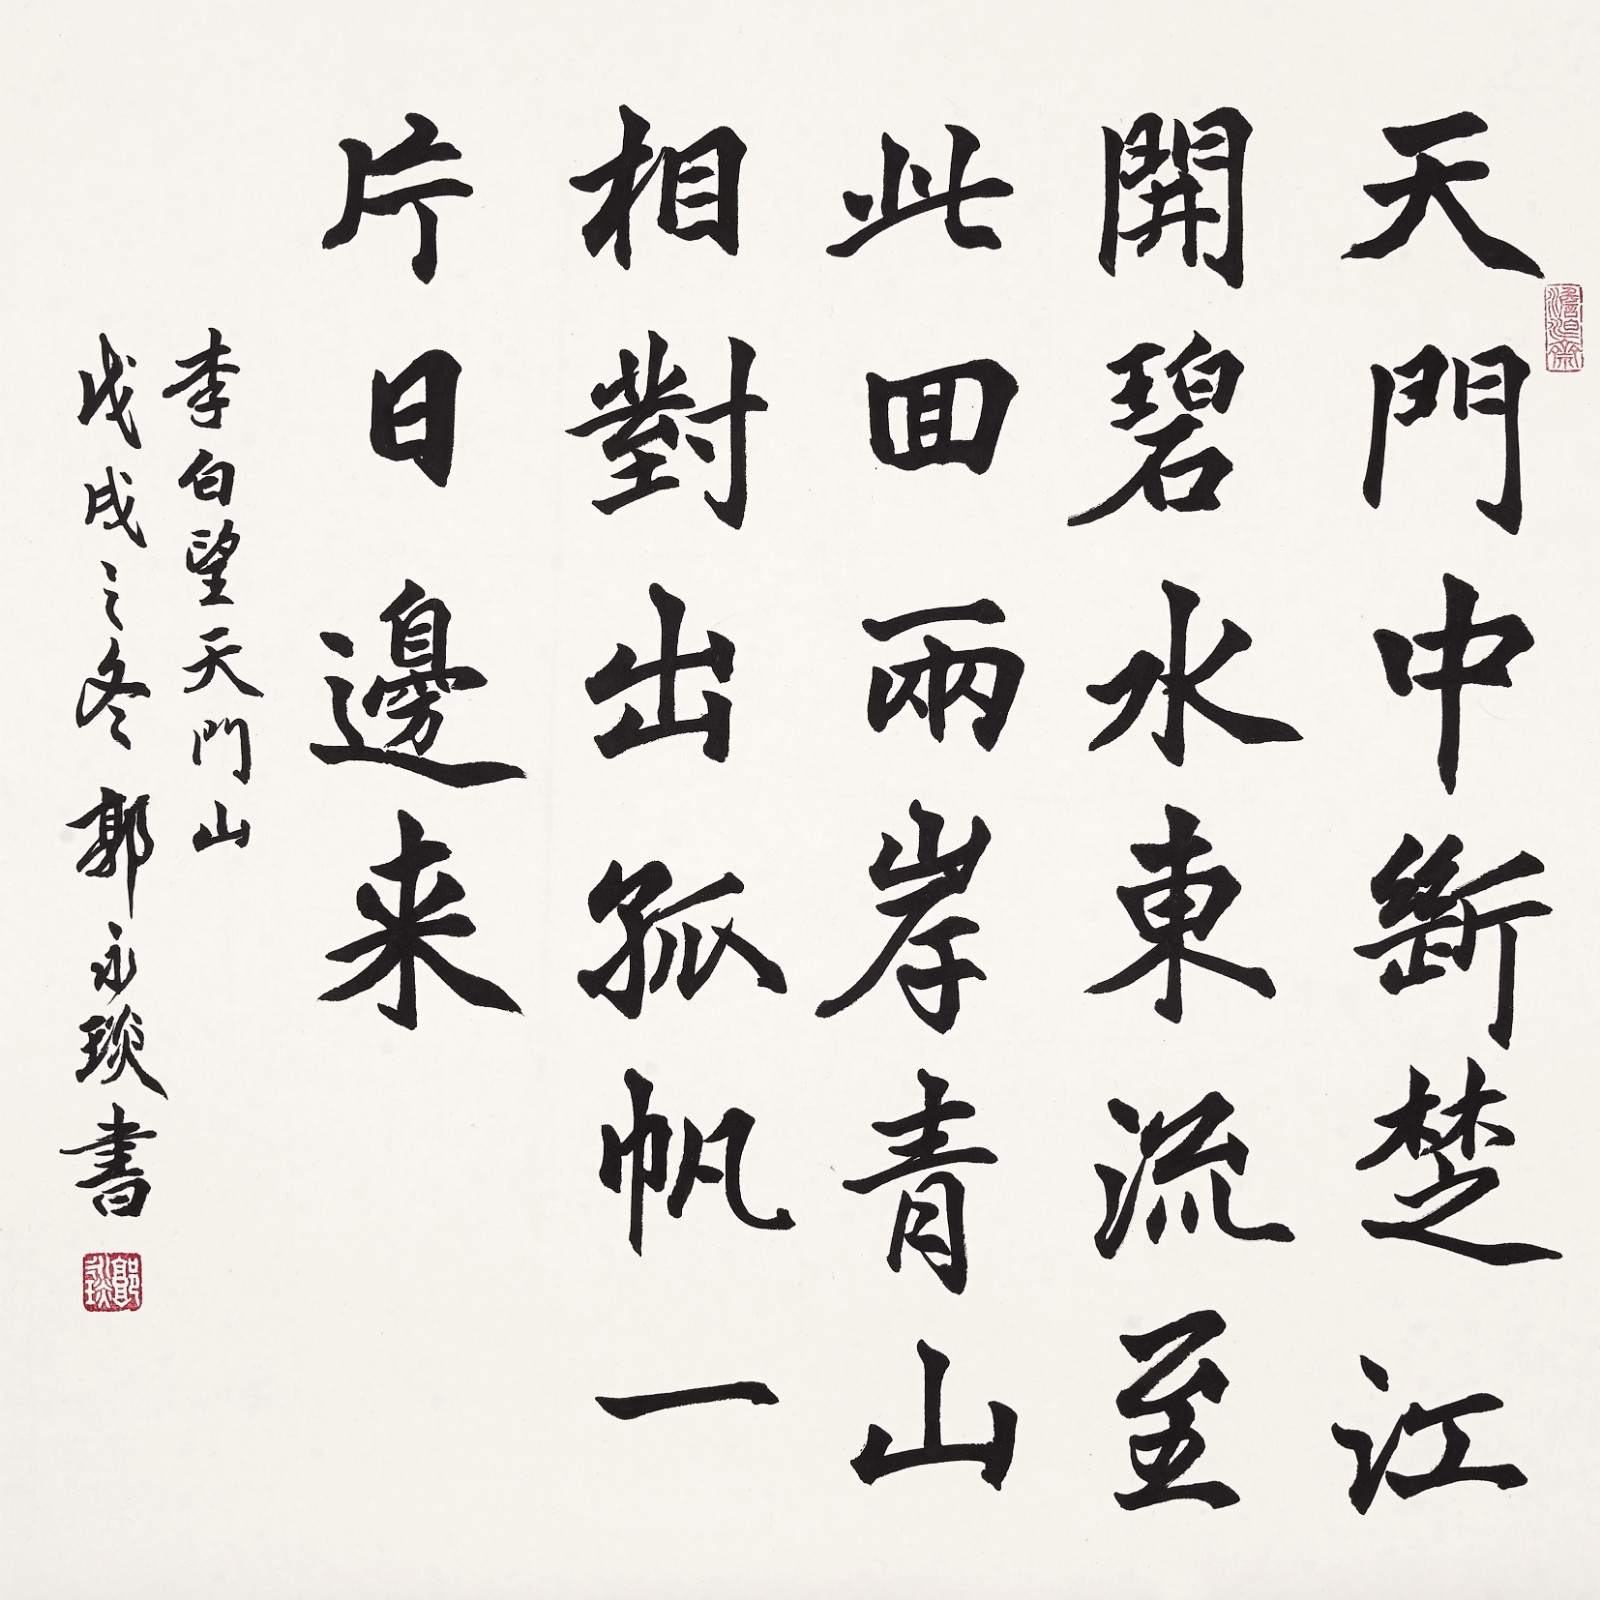 天門中斷楚江
開碧水東流至
此回兩岸青山
相對出孤帆一
片日邊来
李白望天門山
戊戌之冬郭永琰書
郭永琰